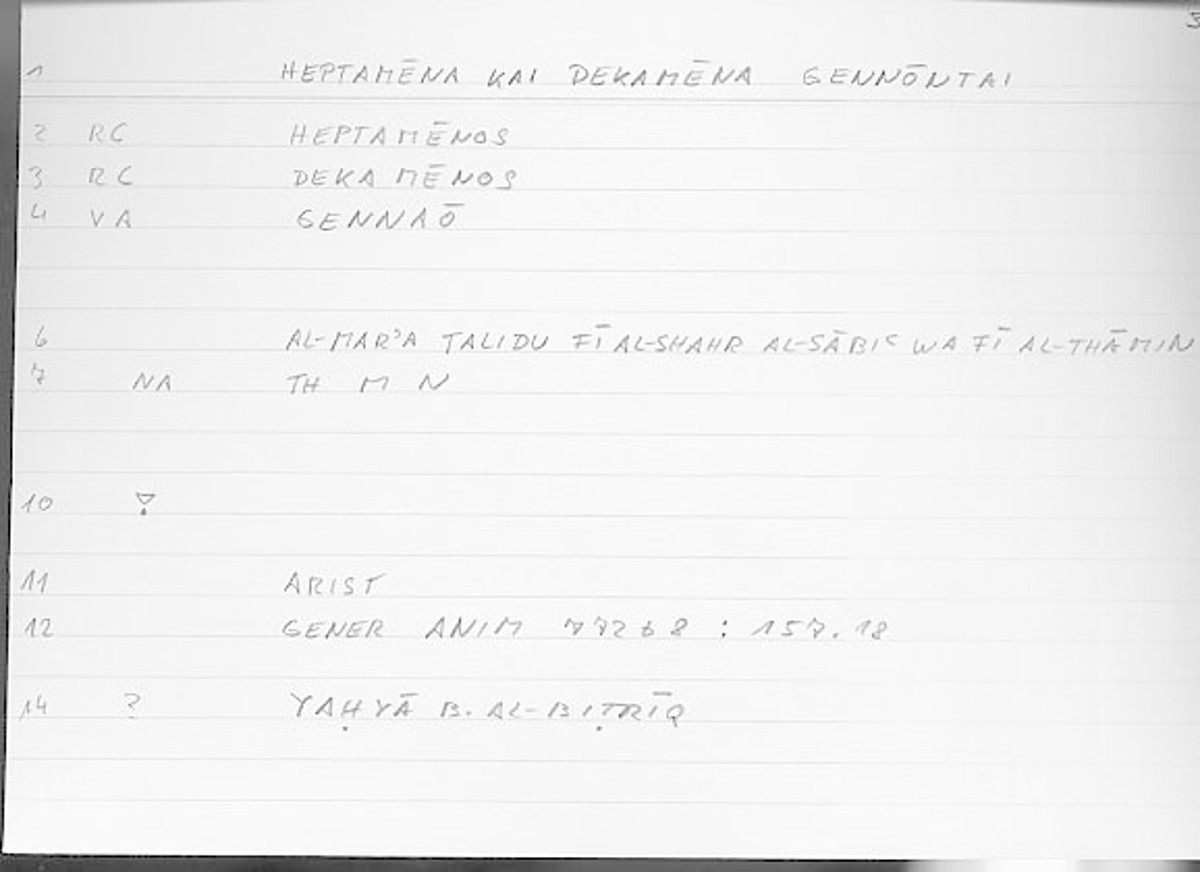 3
1 HEPTAMĒNA KAI DEKAMĒNA GENNŌNTAI
2 RC HEPTAMĒNOS
3 RC DEKAMĒNOS
4 VA GENNAŌ
6 AL-MARʾA TALIDU FĪ AL-SHAHR AL-SĀBIʿ WA FĪ AL-THĀMIN
7 NA TH M N
10
11 ARIST
12 GENER ANIM 772b8 : 157.18
14 ? YAḤYĀ B. AL-BIṬRĪQ